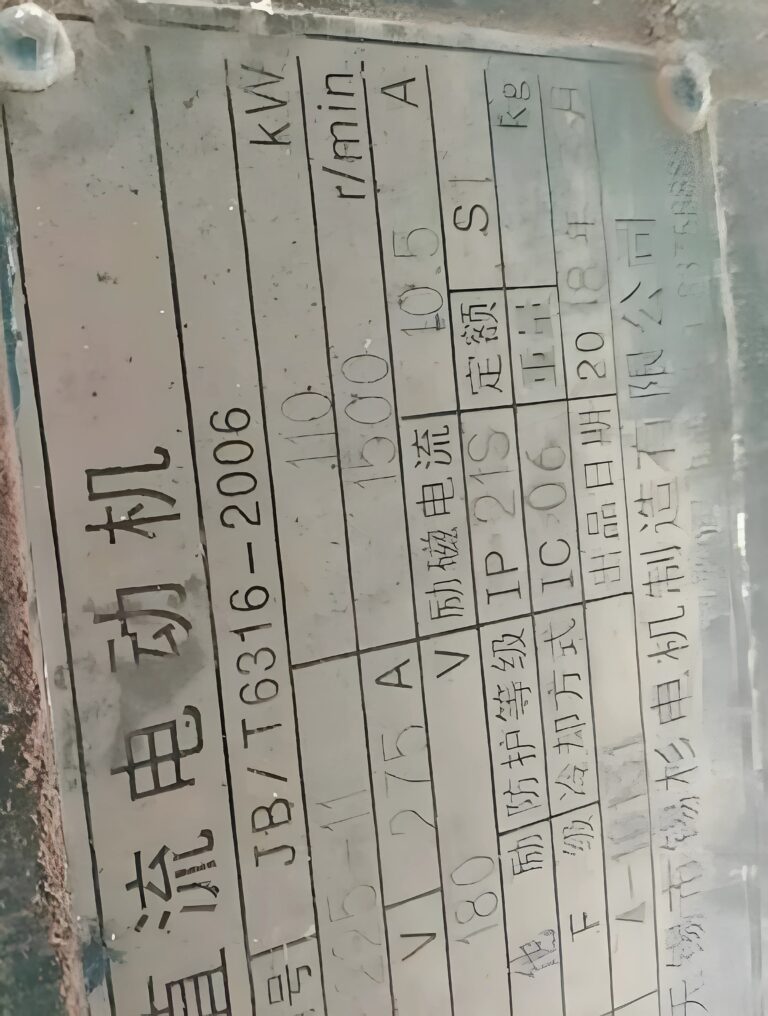 直流电动机
JB/T6316-2006
号 225-11 110 kW
V 275 A 1500 r/min
180 V 励磁电流 10.5 A
他 励 防护等级 IP 21S 定额 S1
F 级 冷却方式 IC 06 kg
出品日期 20 18 年 月
无锡市锡杉电机制造有限公司